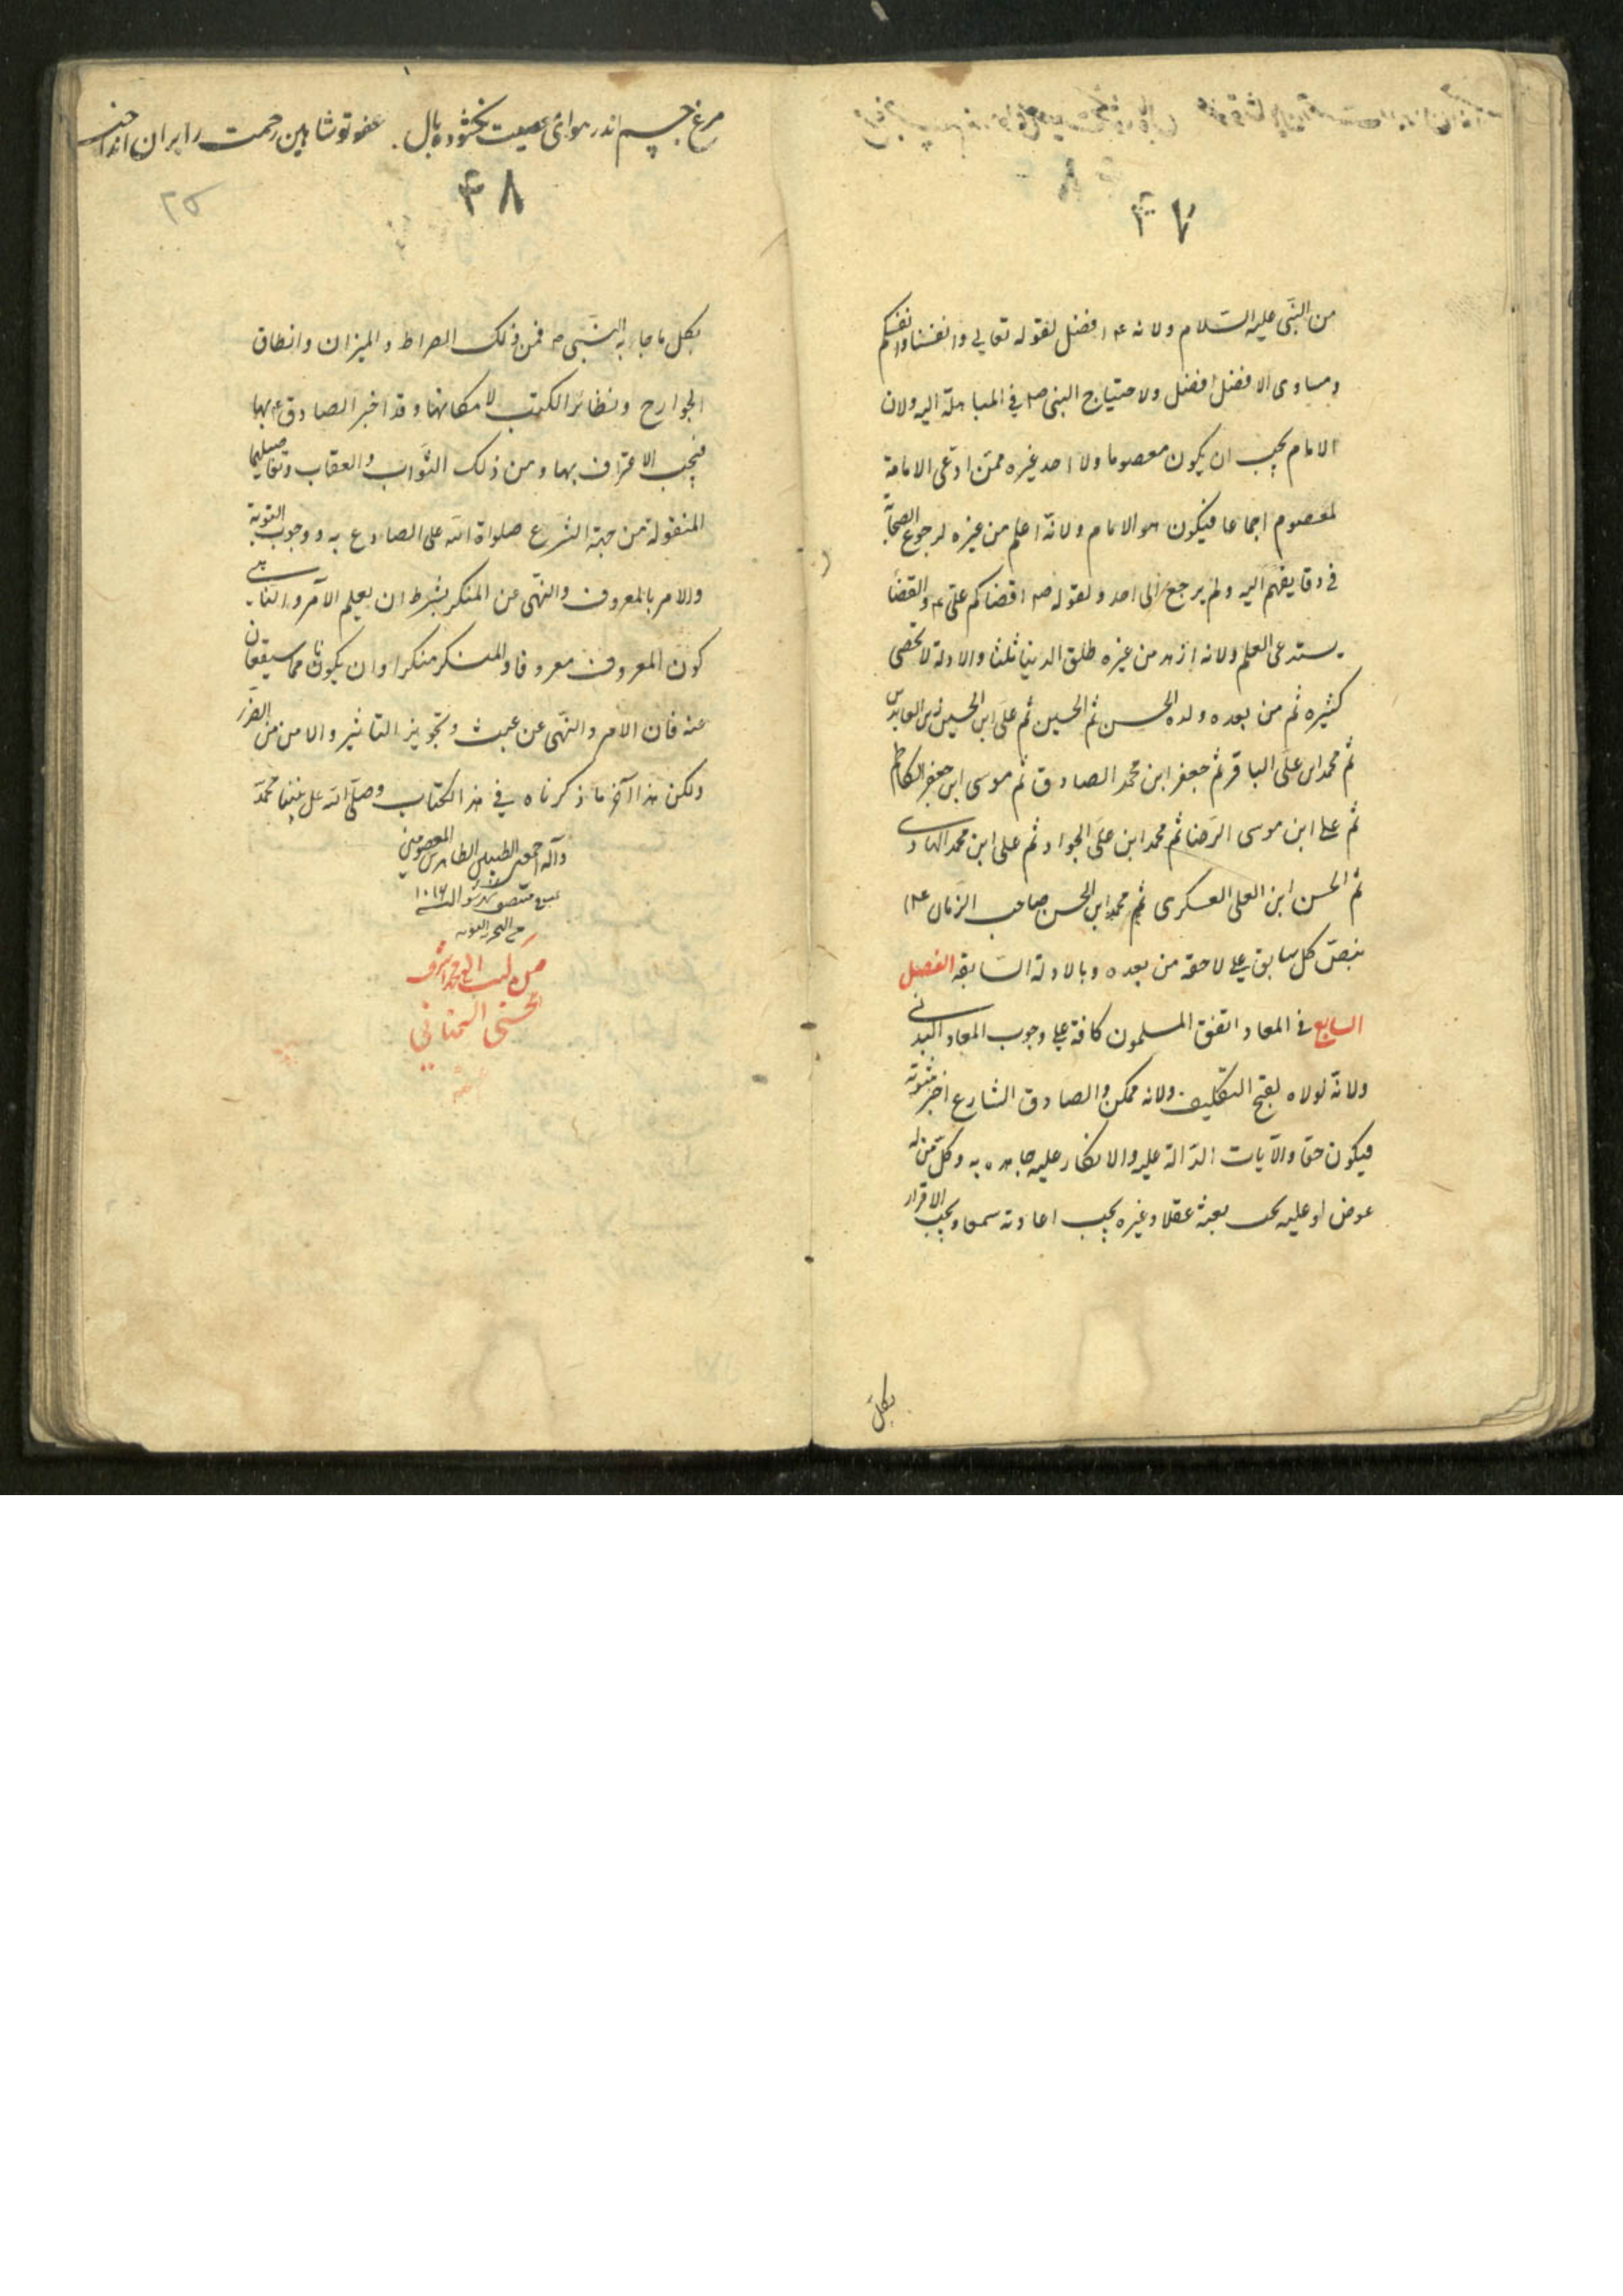 ۴۷
من النبی علیه السّلام ولانه ۴ افضل لقوله تعالی وانفسنا وانفسکم
ومساوی الافضل افضل ولاحتیاج النبی ص فی المباهلة الیه ولان
الامام یجب ان یکون معصوما ولا احد غیره ممّن ادّعی الامامة
لمعصوم اجماعا فیکون هو الامام ولانّه اعلم من غیره لرجوع الصحابة
فی وقایعهم الیه ولم یرجع الی احد ولقوله ص اقضاکم علیّ ۴ والقضا
یستدعی العلم ولانه ازهد من غیره طلق الدنیا ثلثا والادلة لا تحصی
کثیره ثم من بعده ولده الحسن ثم الحسین ثم علی ابن الحسین زین العابدین
ثم محمد ابن علی الباقر ثم جعفر ابن محمد الصادق ثم موسی ابن جعفر الکاظم
ثم علی ابن موسی الرّضا ثم محمد ابن علی الجواد ثم علی ابن محمد الهادی
ثم الحسن ابن العلی العسکری ثم محمد ابن الحسن صاحب الزمان
بنصّ کل سابق علی لاحقه من بعده وبالادلة السّابقه الفصل
السابع فی المعاد اتفق المسلمون کافة علی وجوب المعاد البدنی
ولانّه لولاه لقبح التکلیف ولانه ممکن والصادق الشارع اخبر بثبوته
فیکون حقا والآیات الدّالة علیه والانکار علی جاهده به وکلّ من له
عوض او علیه یجب بعثه عقلا وغیره یجب اعادته سمعا ویجب الاقرار
بکلّ
مرغ جسم اندر هوائی معصیت بخشوده بال . عفو تو شاهین رحمت را بران انداخت
۴۸
۲۵
بکل ما جاء به النّبی ص فمن ذلک الصراط والمیزان وانطاق
الجوارح وتطائر الکتب لامکانها وقد اخبر الصادق ۴ بها
فیجب الاعتراف بها ومن ذلک الثّواب والعقاب وتفاصیلهما
المنقولة من جهة الشّرع صلواة الله علی الصادع به ووجوب التوبة
والامر بالمعروف والنّهی عن المنکر بشرط ان یعلم الآمر والنّاهی
کون المعروف معروفا والمنکر منکرا وان یکونا مما سیقعان
عنه فان الامر والنّهی عن عبث وتجویز التاثیر والامن من الضّرر
ولکن هذا آخر ما ذکرناه فی هذا الکتاب وصلّی الله علی نبینا محمّد
وآله اجمعین الطیبین الطاهرین المعصومین
۱۰۱۶